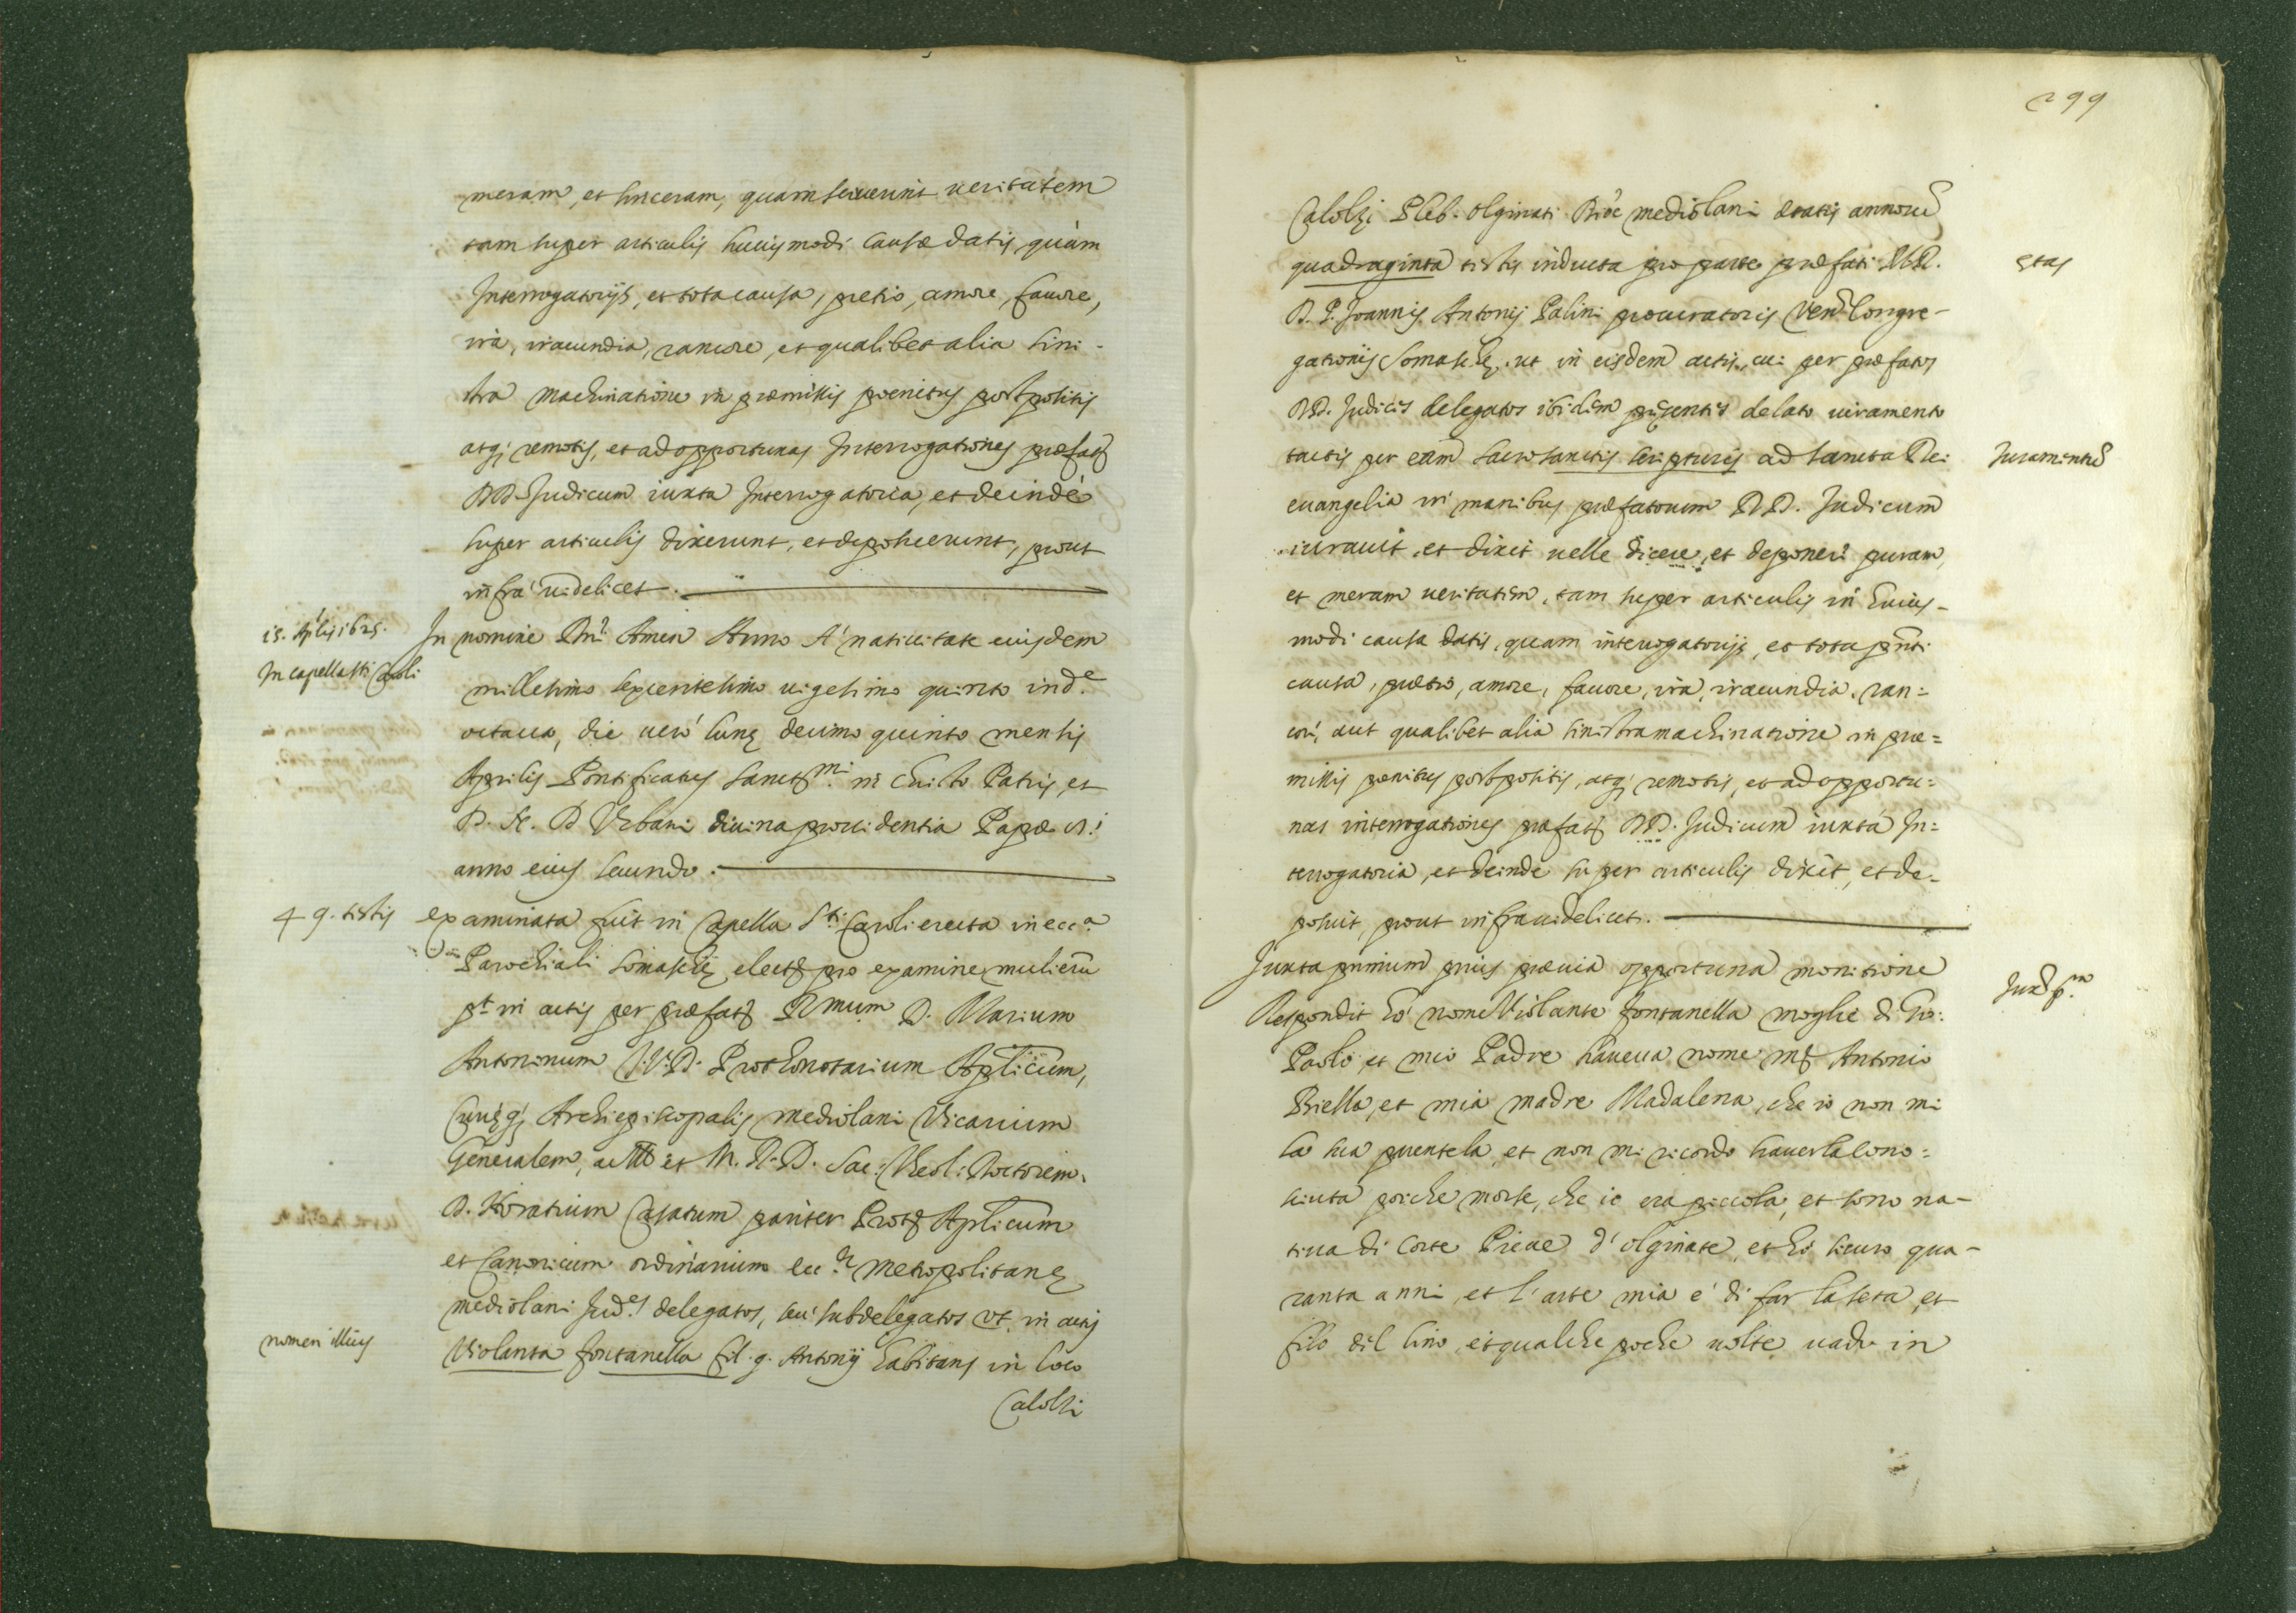 meram, et sinceram, quam sciuerint ueritatem
tam super articulis huiusmodi causæ datis, quàm
Interrogatorijs, et tota causa, pretio, amore, fauore,
ira, iracundia, rancore, et qualibet alia sini-
stra machinatione in præmissis poenitus postpositis
atq; remotis, et ad opportunas Interrogationes præfat
DD. Judicum iuxta Interrogatoria, et deindè
super articulis dixerunt, et deposuerunt, prout
infra uidelicet.
15. Aplis 1625.
In capella Sti Caroli
In nomine Dni Amen Anno A' natiuitate eiusdem
millesimo sexcentesimo uigesimo quinto ind.e
octaua, die uerò lunę decimo quinto mensis
Aprilis Pontificatus Sanct mi in Christo Patris, et
D. N. D Vrbani diuina prouidentia Papæ
anno eius secundo.
49. testis
examinata fuit in Capella Sti Caroli erecta in ecca
Parochiali Somaschę elect pro examine mulierū
pt in actis per præfat Rmum D. Marium
Antoninum J.V.D. Prothonotarium Aplicum,
Curięq; Archiepiscopalis mediolani Vicarium
Generalem, ac et M. R. D. Sac: Theol: Doctorem.
D. Horatium Casatum pariter Prot Aplicum
et Canonicum ordinarium ecc. metropolitanę
mediolani Jud.es delegatos, seù subdelegatos vt in actis
nomen illius
Violanta fontanella fil. q. Antonij habitans in loco
Calolzi
299
Calolzi Pleb. Olginati Dioc mediolani ætatis annorū
quadraginta testis inducta pro parte præfati
ętas
D. P. Joannis Antonij Palini procuratoris Vend Congre-
gationis Somaschę, ut in eisdem actis, cui per præfatos
DD. Judices delegatos ibidem pręsentes delato iuramento
tactis per eam sacrosanctis scripturis ad sancta Dei
Juramentū
euangelia in manibus præfatorum DD. Judicum
iurauit, et dixit uelle dicere, et deponere puram,
et meram ueritatem, tam super articulis in huius-
modi causa datis, quam interrogatorijs, et tota pnti
causa, prætio, amore, fauore, ira, iracundia, ran=
core, aut qualibet alia sinistra machinatione in præ=
missis penitus postpositis, atq; remotis, et ad opportu=
nas interrogationes præfat DD. Judicum iuxta In=
terrogatoria, et deinde super articulis dixit, et de-
posuit, prout infra uidelicet.
Juxta primum prius præuia opportuna monitione
Jux p.m
Respondit hò nome Violante fontanella moglie di Gio:
Paolo, et mio Padre haueua nome m Antonio
Biella, et mia madre Madalena, che io non mi
sò sua parentela et non mi ricordo hauerla cono=
sciuta perche morse, che io era piccola, et sono na-
tiua di Corte Pieue d' olginate, et hò sicuro qua-
ranta anni, et l' arte mia è di far la seta, et
filo del lino, et qualche poche uolte uado in